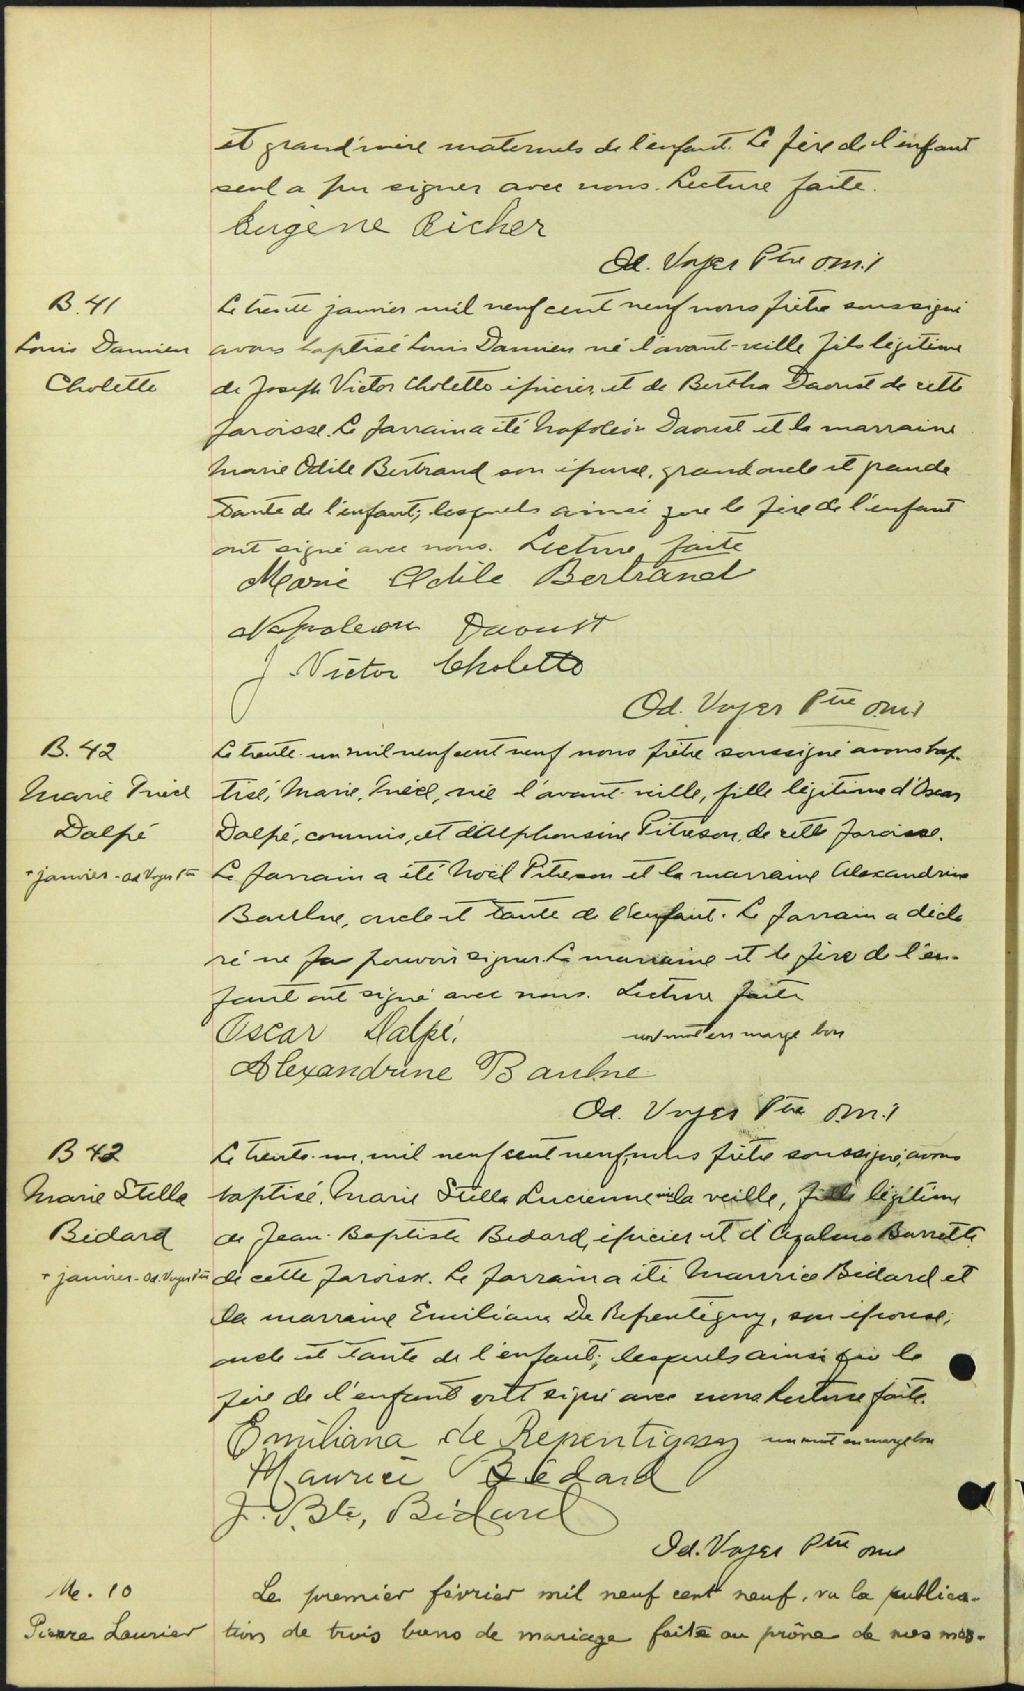 et grand'mère maternels de l'enfant. Le père de l'enfant
seul a pu signer avec nous. Lecture faite.
Eugène Richer
Od. Voyer Ptre o.m.i
B. 41
Louis Damien
Cholette
Le trente janvier mil neuf cent neuf nous prêtre soussigné
avons baptisé Louis Damien né l'avant-veille fils légitime
de Joseph Victor Cholette épicier, et de Bertha Daoust de cette
paroisse. Le parrain a été Napoléon Daoust et la marraine
Marie Odile Bertrand son épouse, grand oncle et grande
tante de l'enfant; lesquels ainsi que le père de l'enfant
ont signé avec nous. Lecture faite
Marie Odile Bertrand
Napoleon Daoust
J. Victor Cholette
Od. Voyer Ptre o.m.i
B. 42
Marie
Dalpé
+ janvier - Od. Voyer Ptre
Le trente-un mil neuf cent neuf nous prêtre soussigné avons bap-
tisé, Marie, née l'avant-veille, fille légitime d'Oscar
Dalpé, commis, et d'Alphonsine Piterson, de cette paroisse.
Le parrain a été Noël Piterson et la marraine Alexandrine
Baulne, oncle et tante de l'enfant. Le parrain a décla
ré ne pas pouvoir signer. La marraine et le père de l'en-
fant ont signé avec nous. Lecture faite
Oscar Dalpé. un mot en marge bon
Alexandrine Baulne
Od. Voyer Ptre o.m.i
B 42
Marie Stella
Bédard
+ janvier - Od. Voyer Ptre
Le trente-un, mil neuf cent neuf, nous prêtre soussigné, avons
baptisé, Marie Stella Lucienne née la veille, fille légitime
de Jean-Baptiste Bédard, épicier et d' Barrette
de cette paroisse. Le parrain a été Maurice Bédard et
la marraine Emiliana De Repentigny, son épouse,
oncle et tante de l'enfant; lesquels ainsi que le
père de l'enfant ont signé avec nous. Lecture faite.
Emiliana de Repentigny un mot en marge bon
Maurice Bédard
J. Bte, Bédard
Od. Voyer Ptre omi
M. 10
Pierre Laurier
Le premier février mil neuf cent neuf, vu la publica-
tion de trois bans de mariage faite au prône de nos mes-